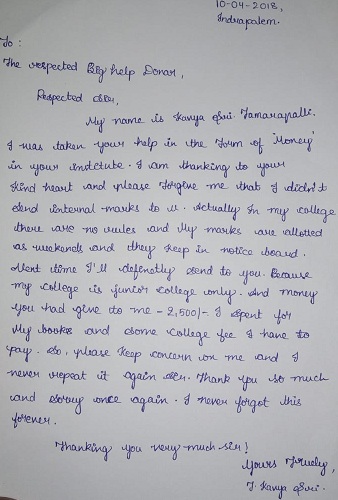 10-04-2018,
Indrapalem.
To :
The respected Big help Donar,
Respected sir,
My name is Kavya Sri. Tamarapalli.
I was taken your help in the form of 'Money'
in your institute. I am thanking to your
kind heart and please forgive me that I didn't
send internal marks to u. Actually In my college
there are no rules and My marks are allotted
as weekends and they keep in notice board.
Next time I'll defenetly send to you. Because
my college is junior college only. And money
you had give to me - 2,500/- I spent for
My books and some college fee I have to
pay. So, please keep concern on me and I
never repeat it again sir. Thank you so much
and sorry once again. I never forgot this
forever.
Thanking you very much sir!
Yours Truely,
T. Kavya Sri.